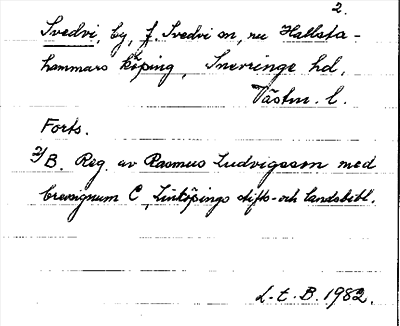 2.
Svedvi, by, f. Svedvi sn, nu Hallsta-
hammars köping, Snevringe hd,
Västm. l.
Forts.
2/B. Reg. av Rasmus Ludvigsson med
brevsignum C, Linköpings stifts- och landsbibl.
L-t. B. 1982.